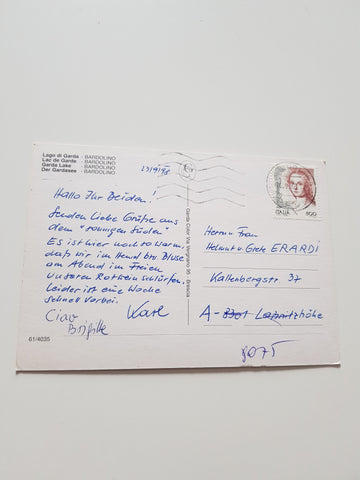 Lago di Garda - BARDOLINO
Lac de Garde - BARDOLINO
Garda Lake - BARDOLINO
Der Gardasee - BARDOLINO
23/9/98
Hallo Ihr Beiden!
Senden Liebe Grüße aus
dem "sonnigen Süden"
Es ist hier noch so warm,
daß wir im Hemd bzw. Bluse
am Abend im Freien
unseren Rotwein schlürfen.
Leider ist eine Woche
schnell vorbei.
Ciao
Brigitte
Karl
61/4035
Garda Color Via Vergnano 95 - Brescia
ITALIA 800
Herrn Frau
Helmut u. Grete ERARDI
Kaltenbergstr 37
A - 8301 Laßnitzhöhe
8075